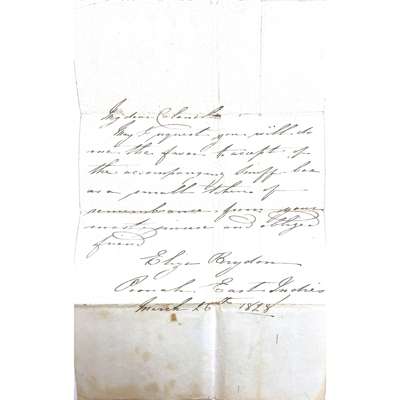 My dear Colonel
May I request you will do
me the favor to accept of
the accompanying Snuff box
as a small token of
remembrance from your
most sincere and obliged
friend
Eliza Brydon
East Indies
March 26th 1828